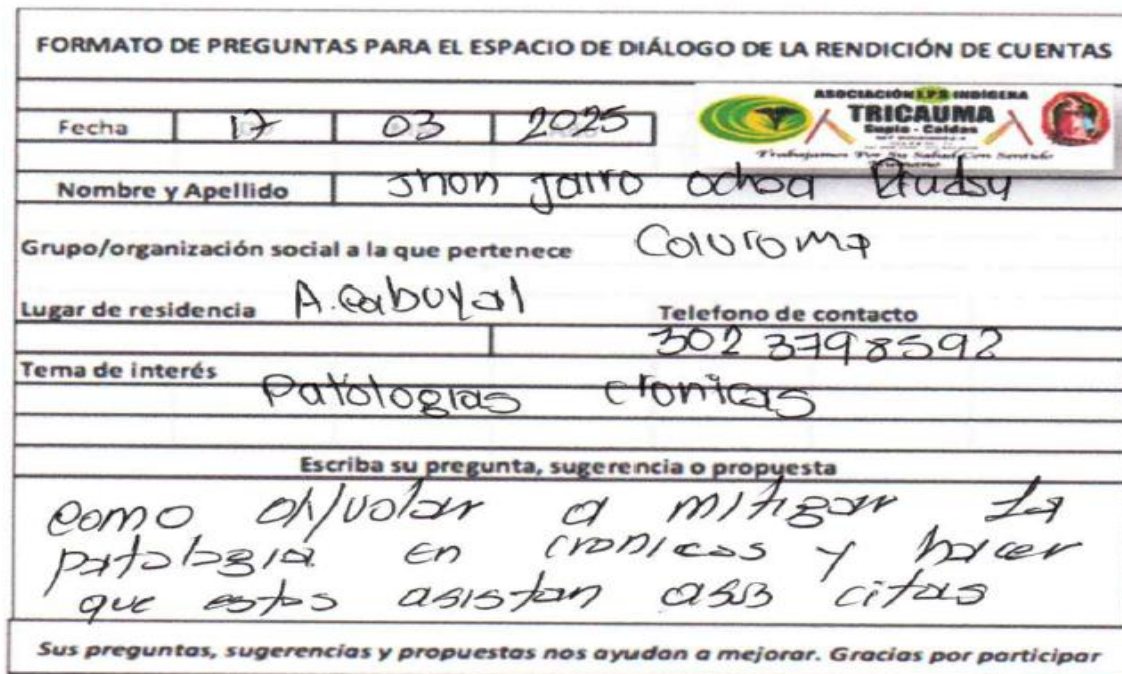 FORMATO DE PREGUNTAS PARA EL ESPACIO DE DIÁLOGO DE LA RENDICIÓN DE CUENTAS
ASOCIACIÓN I.P.S INDÍGENA
TRICAUMA
Supía - Caldas
Trabajamos Por Su Salud Con Sentido
Fecha 17 03 2025
Nombre y Apellido Jhon Jairo Ochoa
Grupo/organización social a la que pertenece
Lugar de residencia A. Cabuyal Telefono de contacto
302 3798592
Tema de interés
Patologias cronicas
Escriba su pregunta, sugerencia o propuesta
como a mitigar la
patologia en cronicos y hacer
que estos asistan citas
Sus preguntas, sugerencias y propuestas nos ayudan a mejorar. Gracias por participar